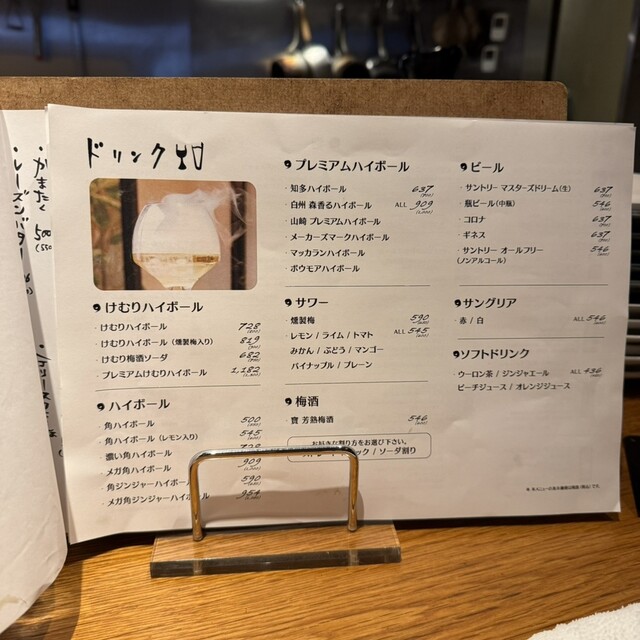 ドリンク
けむりハイボール
けむりハイボール 728
けむりハイボール (燻製梅入り) 819
けむり梅酒ソーダ 682
プレミアムけむりハイボール 1,182
ハイボール
角ハイボール 500
角ハイボール (レモン入り) 545
濃い角ハイボール 728
メガ角ハイボール 909
角ジンジャーハイボール 590
メガ角ジンジャーハイボール 954
プレミアムハイボール
知多ハイボール 637
白州 森香るハイボール ALL 909
山崎 プレミアムハイボール
メーカーズマークハイボール
マッカランハイボール
ボウモアハイボール
サワー
燻製梅 590
レモン / ライム / トマト ALL 545
みかん / ぶどう / マンゴー
パイナップル / プレーン
梅酒
寶 芳熟梅酒 546
お好きな割り方をお選び下さい。
ック / ソーダ割り
ビール
サントリー マスターズドリーム(生) 637
瓶ビール(中瓶) 546
コロナ 637
ギネス 637
サントリー オールフリー 546
(ノンアルコール)
サングリア
赤 / 白 ALL 546
ソフトドリンク
ウーロン茶 / ジンジャエール ALL 436
ピーチジュース / オレンジジュース
かまたく
500
(550
レーズンバター